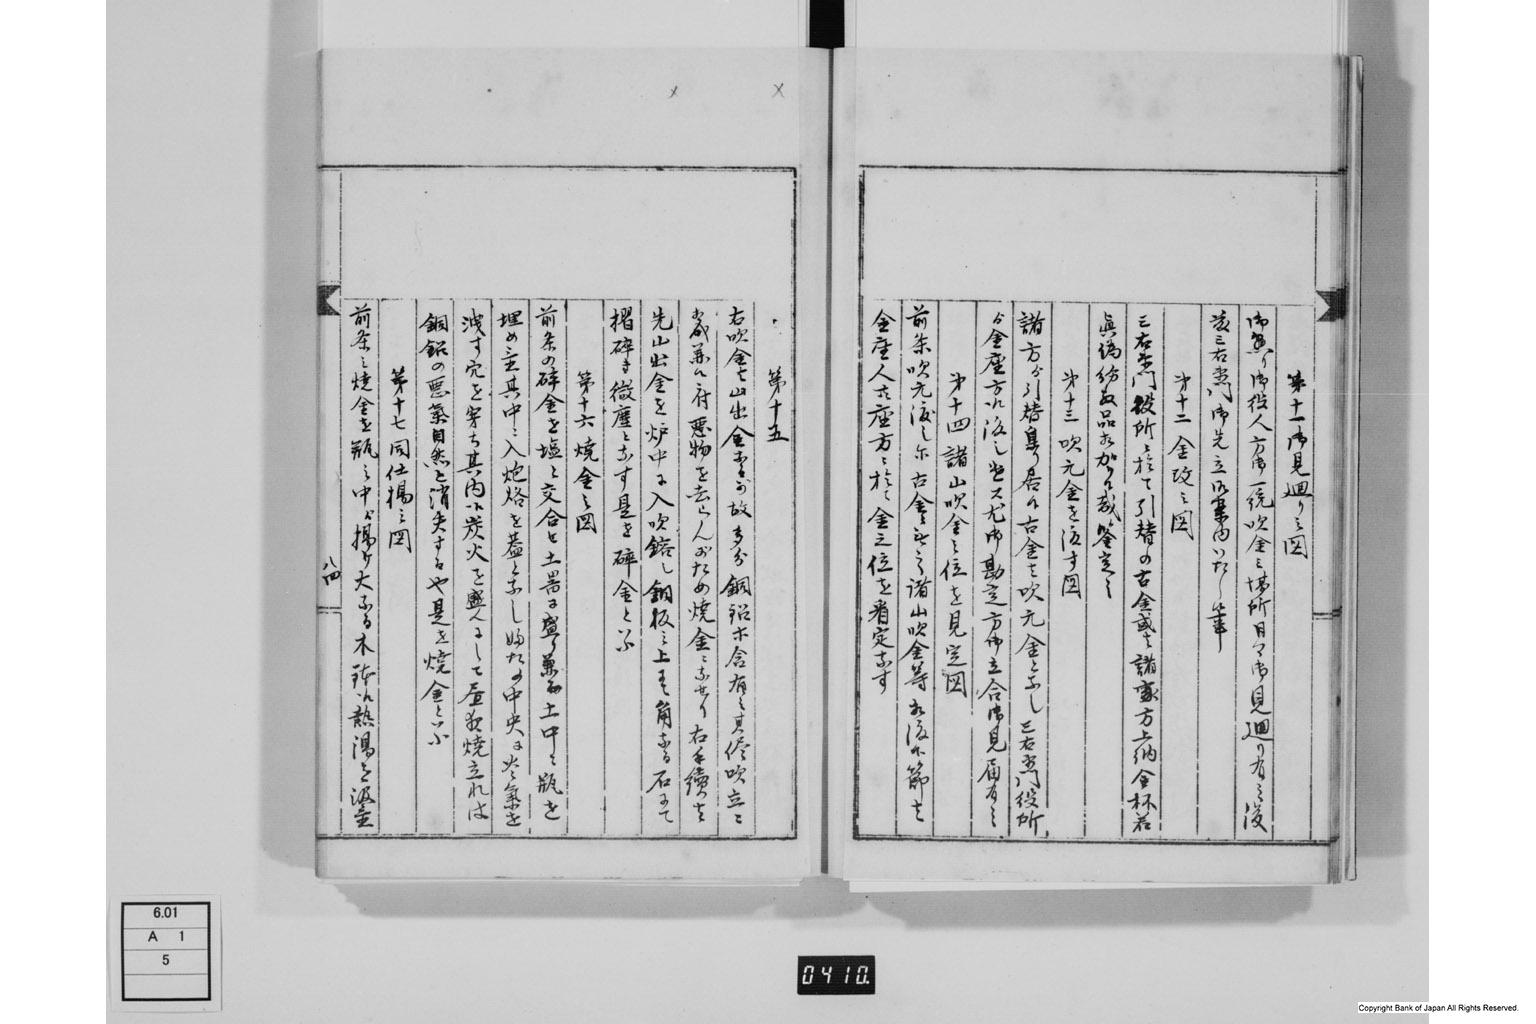 第十一 御見廻り之図
御懸り御役人方御一統吹金之場所日々御見廻り有之後
三右衛門御先立御案内いたし
第十二 金改之図
三右衛門役所ニ於て引替の古金或ハ諸家方上納金杯若
真偽紛敷品相加り候哉鑒定之
第十三 吹元金を渡す図
諸方ゟ引替集り居候古金を吹元金となし三右衛門役所
ゟ金座方江渡し尤御勘定方御立合御見届有之
第十四 諸山吹金之位を見定図
前条吹元渡し古金并諸山吹金等相渡候節ハ
金座人座方ニ於て金之位を看定なす
第十五
右吹金ハ山出金故多分銅鉛等含有之其儘吹立ニ
悪物を去らんがため焼金ニなせり右手続ハ
先山出金を炉中に入吹鎔し銅板之上ニて角なる石にて
摺砕き微塵となす是を砕金といふ
第十六 焼金之図
前条の砕金を塩と交合せ土器に盛り土中に瓶を
埋め其中ニ入炮烙を蓋となし中央に火気を
洩す穴を穿ち其内江炭火を盛んにして昼夜焼立れは
銅鉛の悪気自然と消失するや是を焼金といふ
第十七 同仕揚之図
前条之焼金を瓶之中ゟ揚け大なる木鉢江熱湯を
八四
6.01
A 1
5
0410.
Copyright Bank of Japan All Rights Reserved.